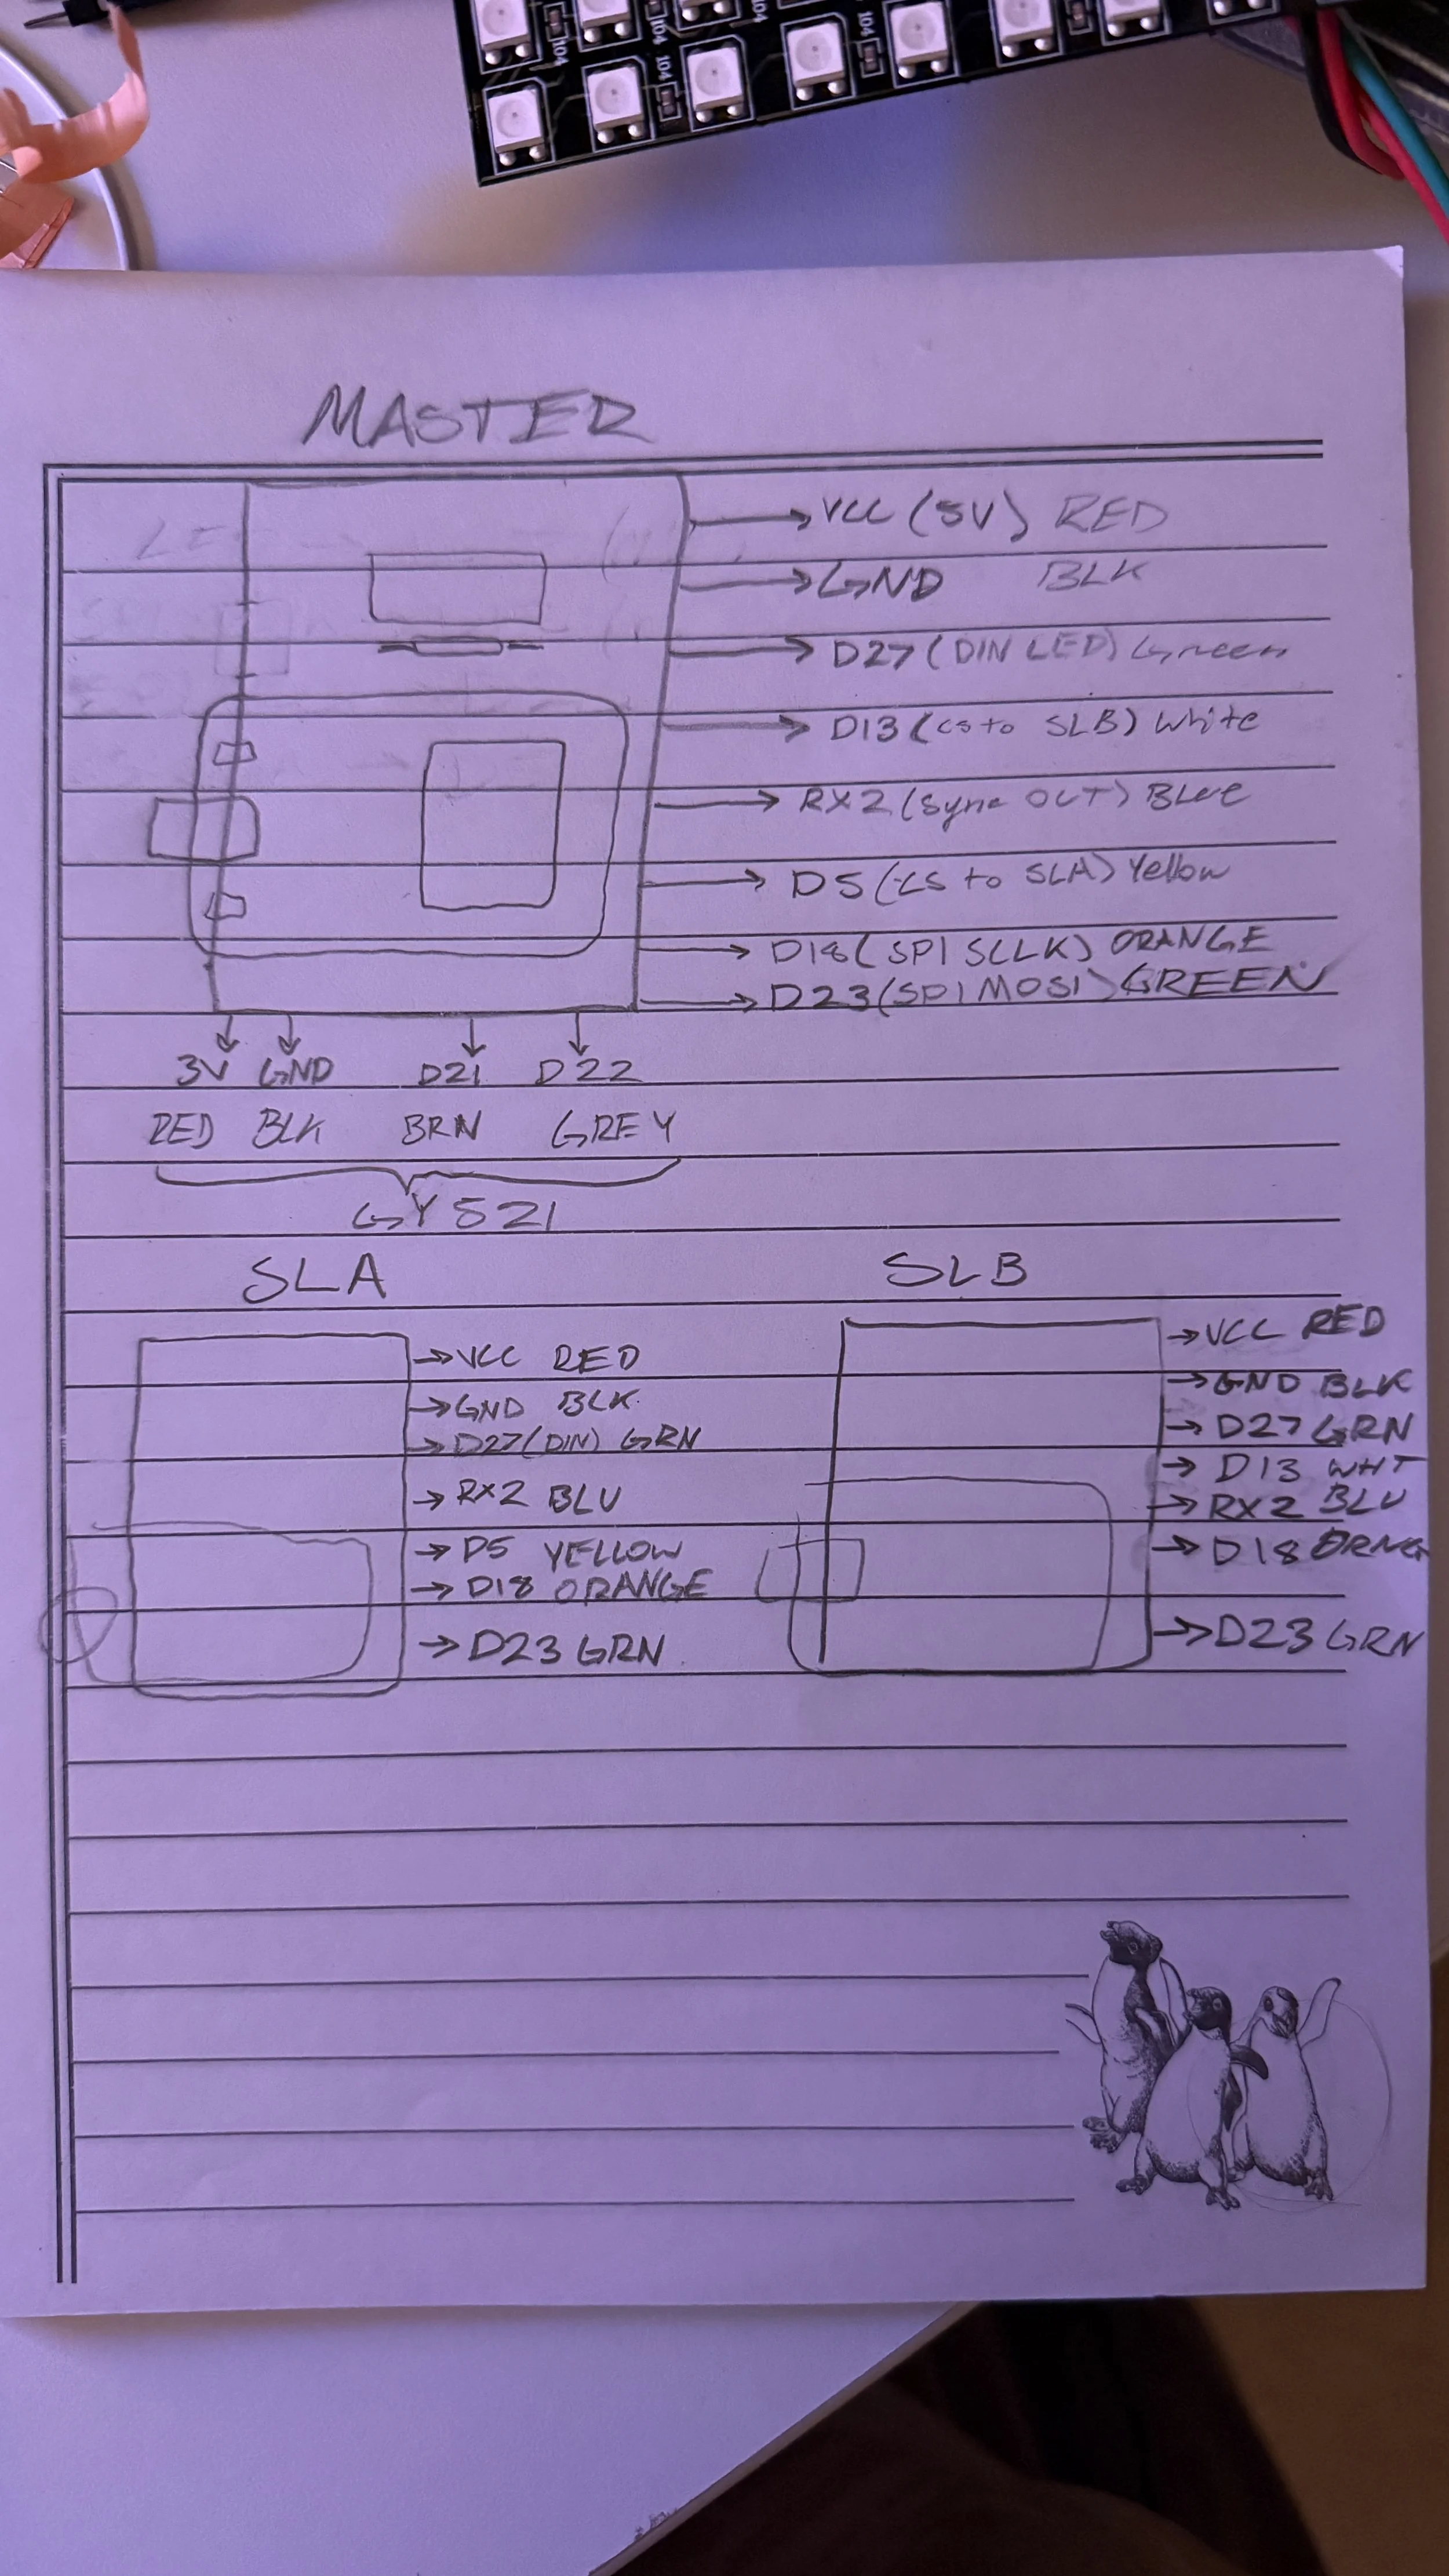 104
104
104
104
104
MASTER
VCC (5V) RED
GND BLK
D27 (DIN LED) Green
D13 (CS to SLB) White
RX2 (Sync OUT) Blue
D5 (CS to SLA) Yellow
D18 (SPI SCLK) ORANGE
D23 (SPI MOSI) GREEN
3V GND D21 D22
RED BLK BRN GREY
GY521
SLA
VCC RED
GND BLK
D27 (DIN) GRN
RX2 BLU
D5 YELLOW
D18 ORANGE
D23 GRN
SLB
VCC RED
GND BLK
D27 GRN
D13 WHT
RX2 BLU
D18 ORNG
D23 GRN